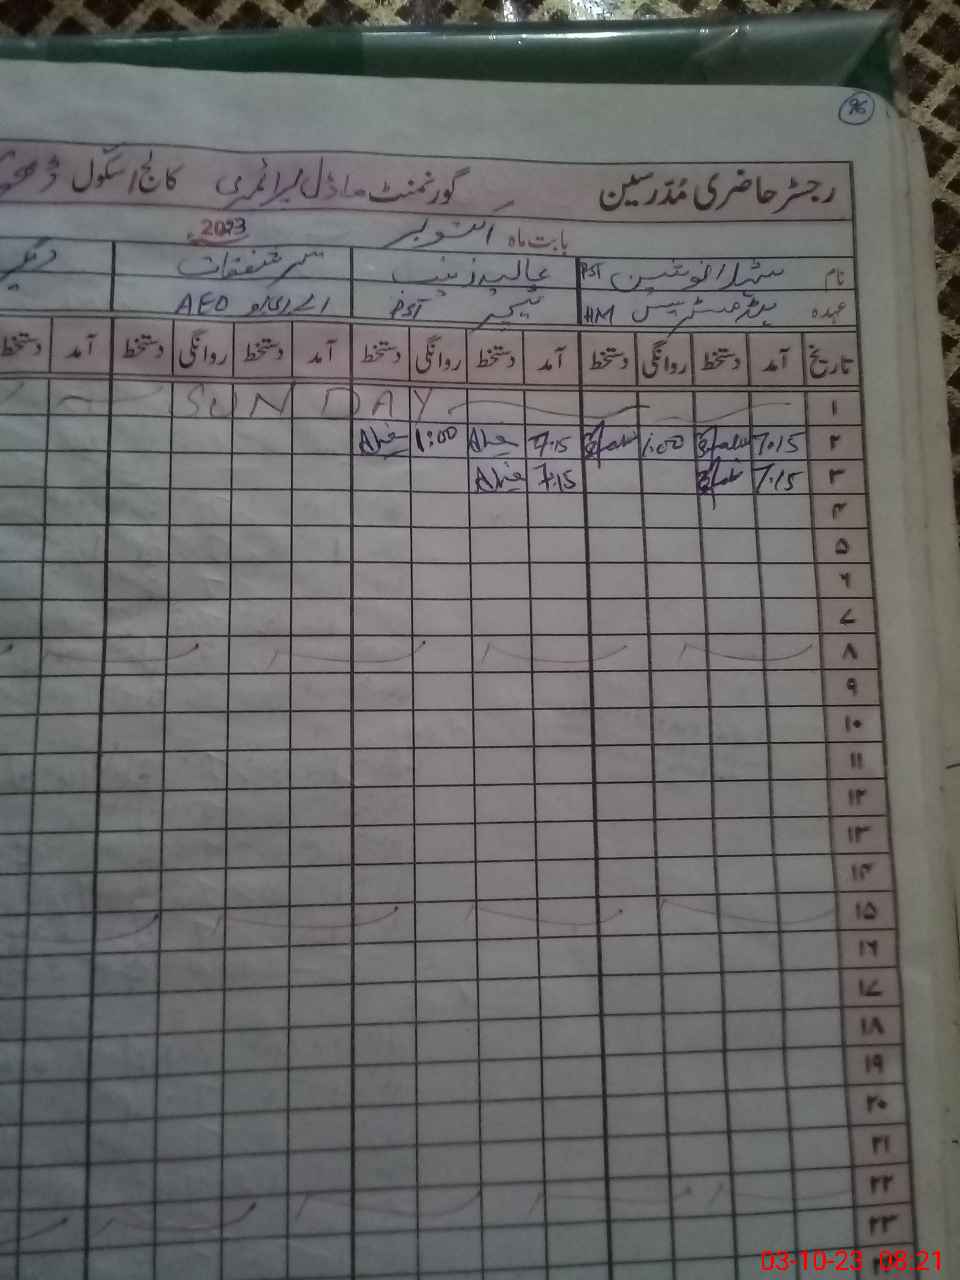 96
رجسٹر حاضری مُدّرسین گورنمنٹ ماڈل پرائمری کالج اسکول
بابت ماہ اکتوبر 2023
نام PST عالیہ زینب
عہدہ ہیڈ مسٹریس HM ٹیچر PST اے ای او AEO
تاریخ آمد دستخط روانگی دستخط آمد دستخط روانگی دستخط آمد دستخط روانگی دستخط آمد دستخط
۱ SUNDAY
۲ 7:15 1:00 7:15 1:00
۳ 7:15 7:15
۴
۵
۶
۷
۸
۹
۱۰
۱۱
۱۲
۱۳
۱۴
۱۵
۱۶
۱۷
۱۸
۱۹
۲۰
۲۱
۲۲
۲۳
03-10-23 08:21